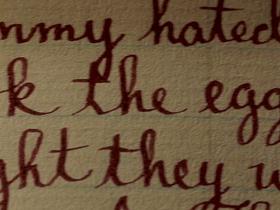 mmy hated
k the egg
ght they w